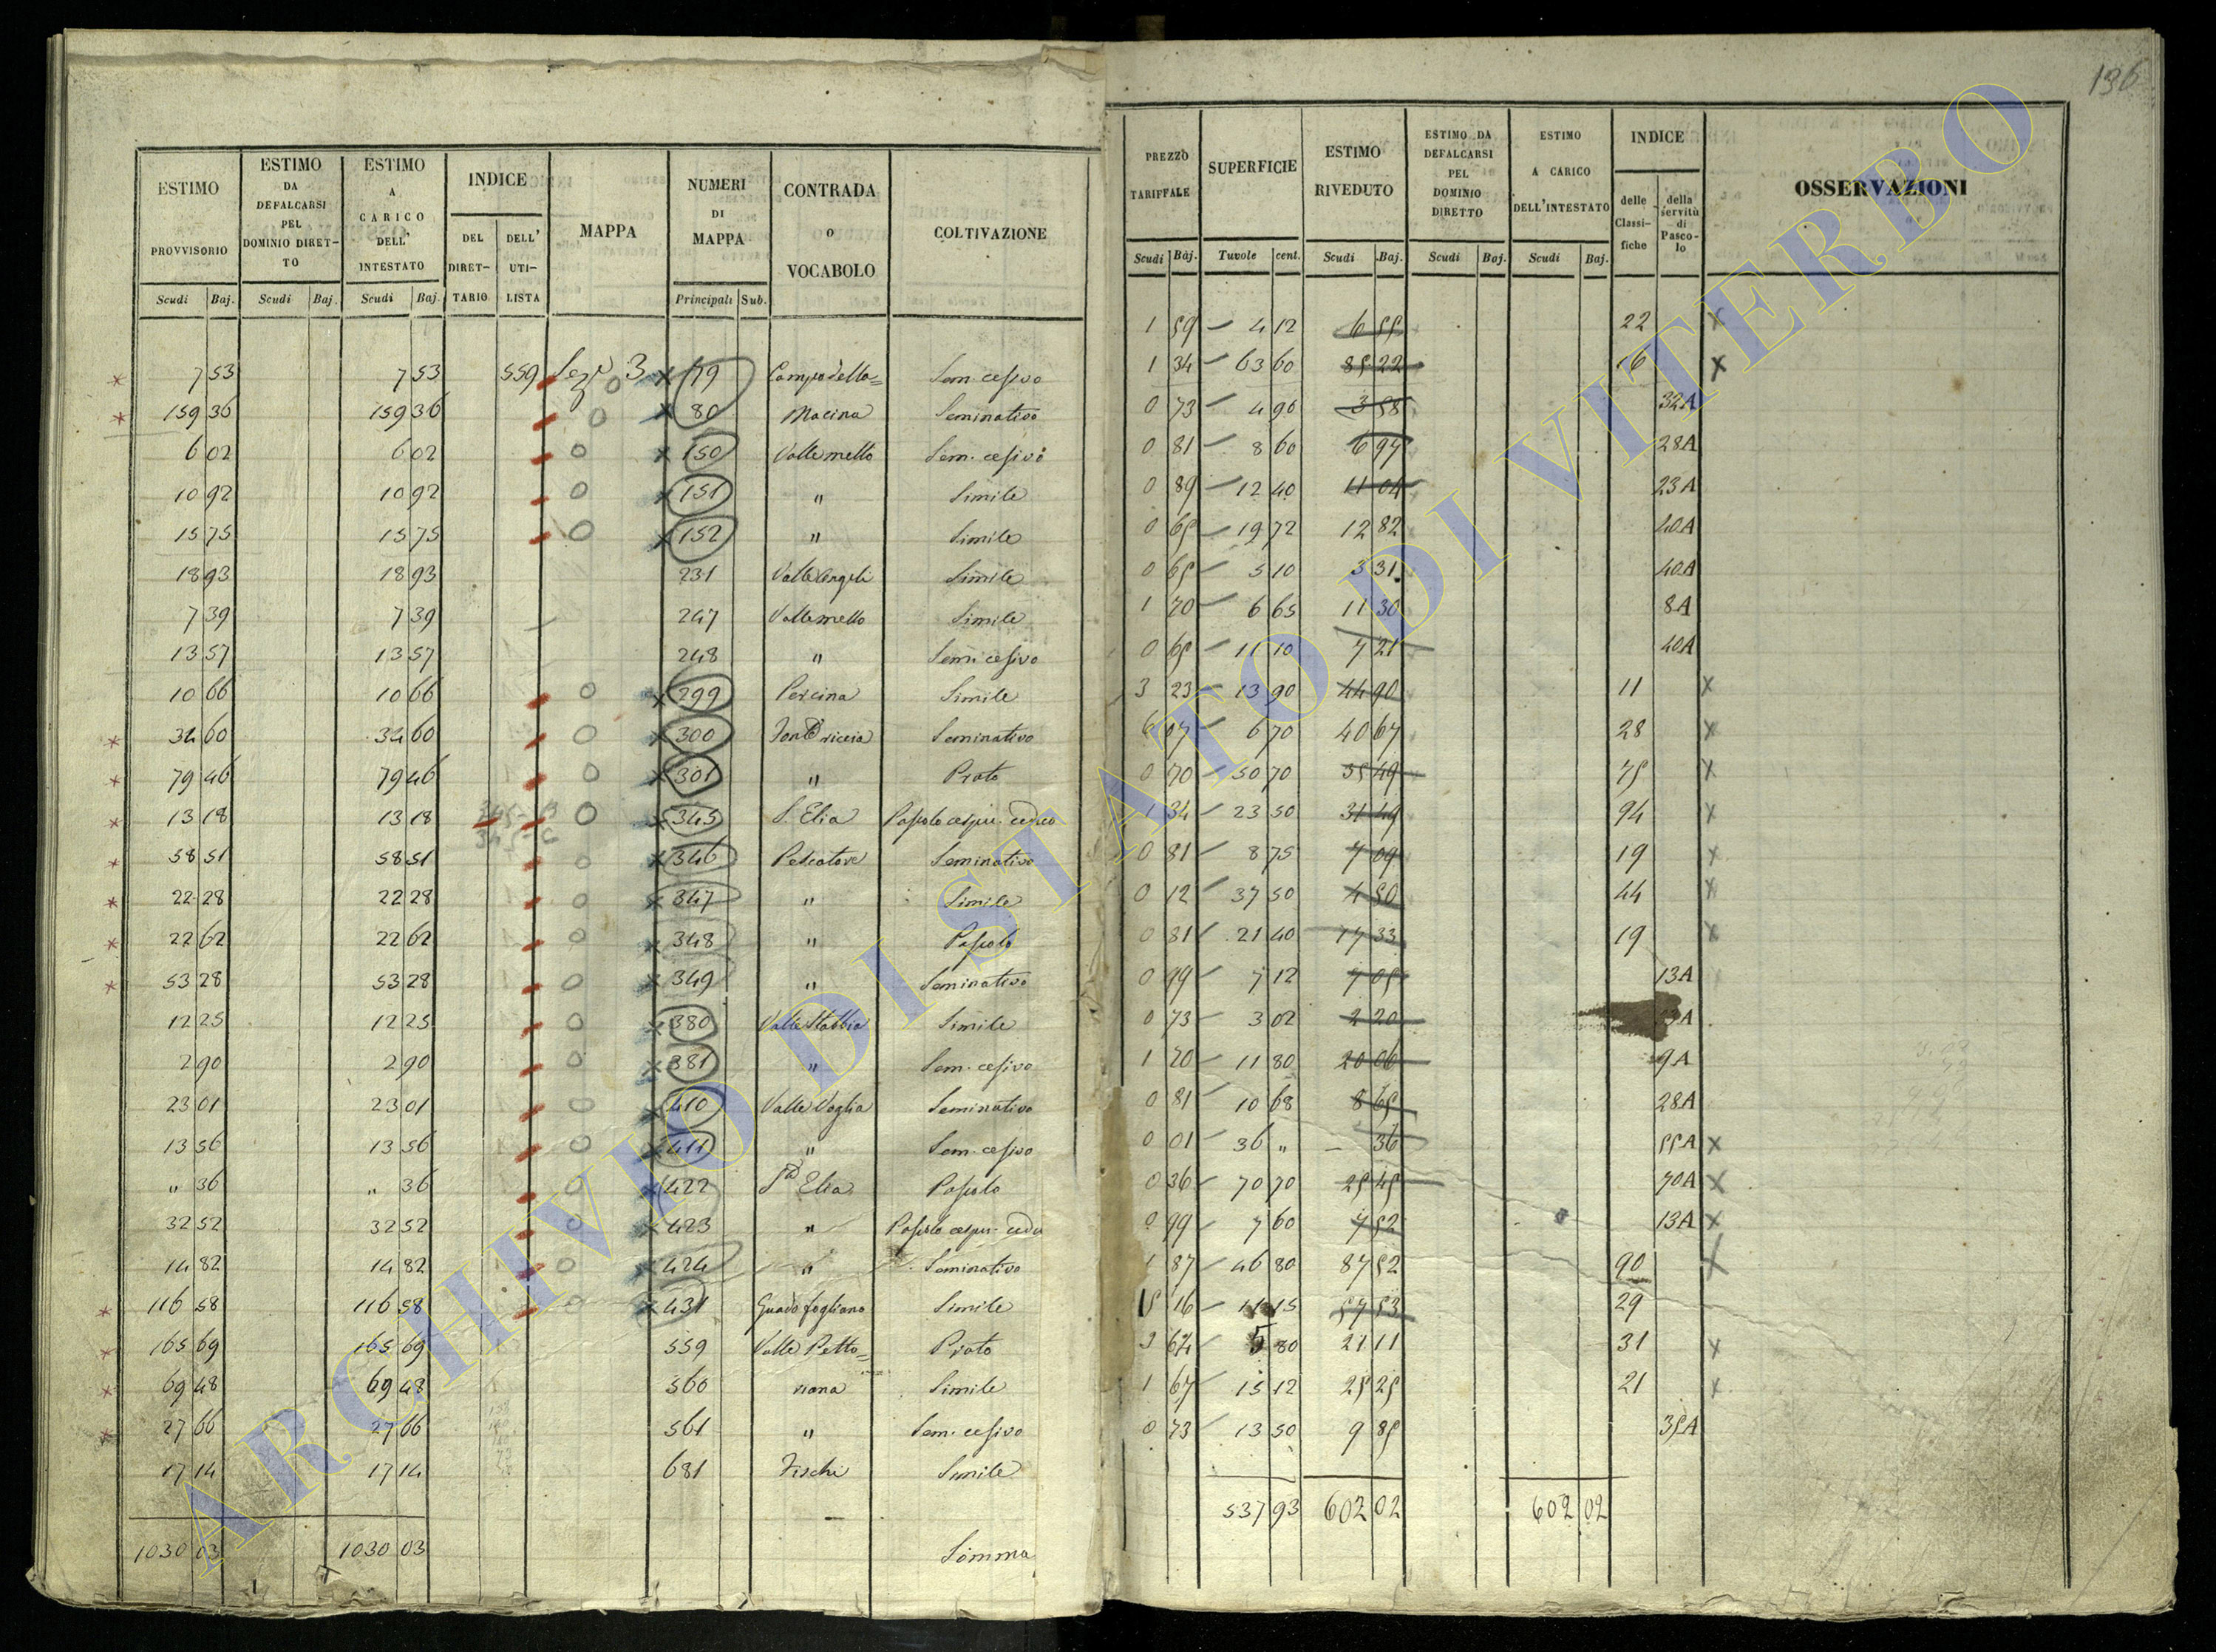 136
ESTIMO PROVVISORIO ESTIMO DA DEFALCARSI PEL DOMINIO DIRET-TO ESTIMO A CARICO DELL' INTESTATO INDICE DEL DIRET-TARIO DELL' UTI-LISTA MAPPA NUMERI DI MAPPA CONTRADA O VOCABOLO COLTIVAZIONE
Scudi Baj. Scudi Baj. Scudi Baj. Principali Sub.
7 53 7 53 559 Sezne 3 79 Campo della= Sem. cesivo
159 36 159 36 80 Macina Seminativo
6 02 6 02 150 Vallemello Sem. cesivo
10 92 10 92 151 " Simile
15 75 15 75 152 " Simile
18 93 18 93 231 Simile
7 39 7 39 247 Vallemello Simile
13 57 13 57 248 " Sem. cesivo
10 66 10 66 299 Pescina Simile
34 60 34 60 300 Seminativo
79 46 79 46 301 " Prato
13 18 13 18 345 S. Elia Pascolo cespu. ceduo
58 51 58 51 346 Pescatore Seminativo
22 28 22 28 347 " Simile
22 62 22 62 348 " Pascolo
53 28 53 28 349 " Seminativo
12 25 12 25 380 Valle Stabbia Simile
2 90 2 90 381 " Sem. cesivo
23 01 23 01 410 Valle Voglia Seminativo
13 56 13 56 411 " Sem. cesivo
" 36 " 36 422 Sa Elia Pascolo
32 52 32 52 423 " Pascolo cespu. cedu
14 82 14 82 424 " Seminativo
116 58 116 58 431 Guado fogliano Simile
165 69 165 69 559 Valle Petto= Prato
69 48 69 48 560 riana Simile
27 66 27 66 561 " Sem. cesivo
17 14 17 14 681 Fischi Simile
1030 03 1030 03 Somma
PREZZO TARIFFALE SUPERFICIE ESTIMO RIVEDUTO ESTIMO DA DEFALCARSI PEL DOMINIO DIRETTO ESTIMO A CARICO DELL'INTESTATO INDICE delle Classi-fiche della servitù di Pasco-lo OSSERVAZIONI
Scudi Baj. Tavole cent. Scudi Baj. Scudi Baj. Scudi Baj.
1 59 4 12 6 55 22
1 34 63 60 85 22 16
0 73 4 90 3 58 32A
0 81 8 60 6 97 28A
0 89 12 40 11 04 23A
0 65 19 72 12 82 40A
0 65 5 10 3 31 40A
1 70 6 65 11 30 8A
0 65 11 10 7 21 40A
3 23 13 90 44 90 11
6 07 6 70 40 67 28
0 70 50 70 35 49 75
1 34 23 50 31 49 94
0 81 8 75 7 09 19
0 12 37 50 4 50 44
0 81 21 40 17 33 19
0 99 7 12 7 05 13A
0 73 3 02 2 20
1 70 11 80 20 06 9A
0 81 10 68 8 65 28A
0 01 36 " – 36 55A
0 36 70 70 25 45 70A
0 99 7 60 7 52 13A
1 87 46 80 87 52 90
5 16 11 15 57 53 29
3 64 5 80 21 11 31
1 67 15 12 25 25 21
0 73 13 50 9 85 35A
537 93 602 02 602 02
ARCHIVIO DI STATO DI VITERBO